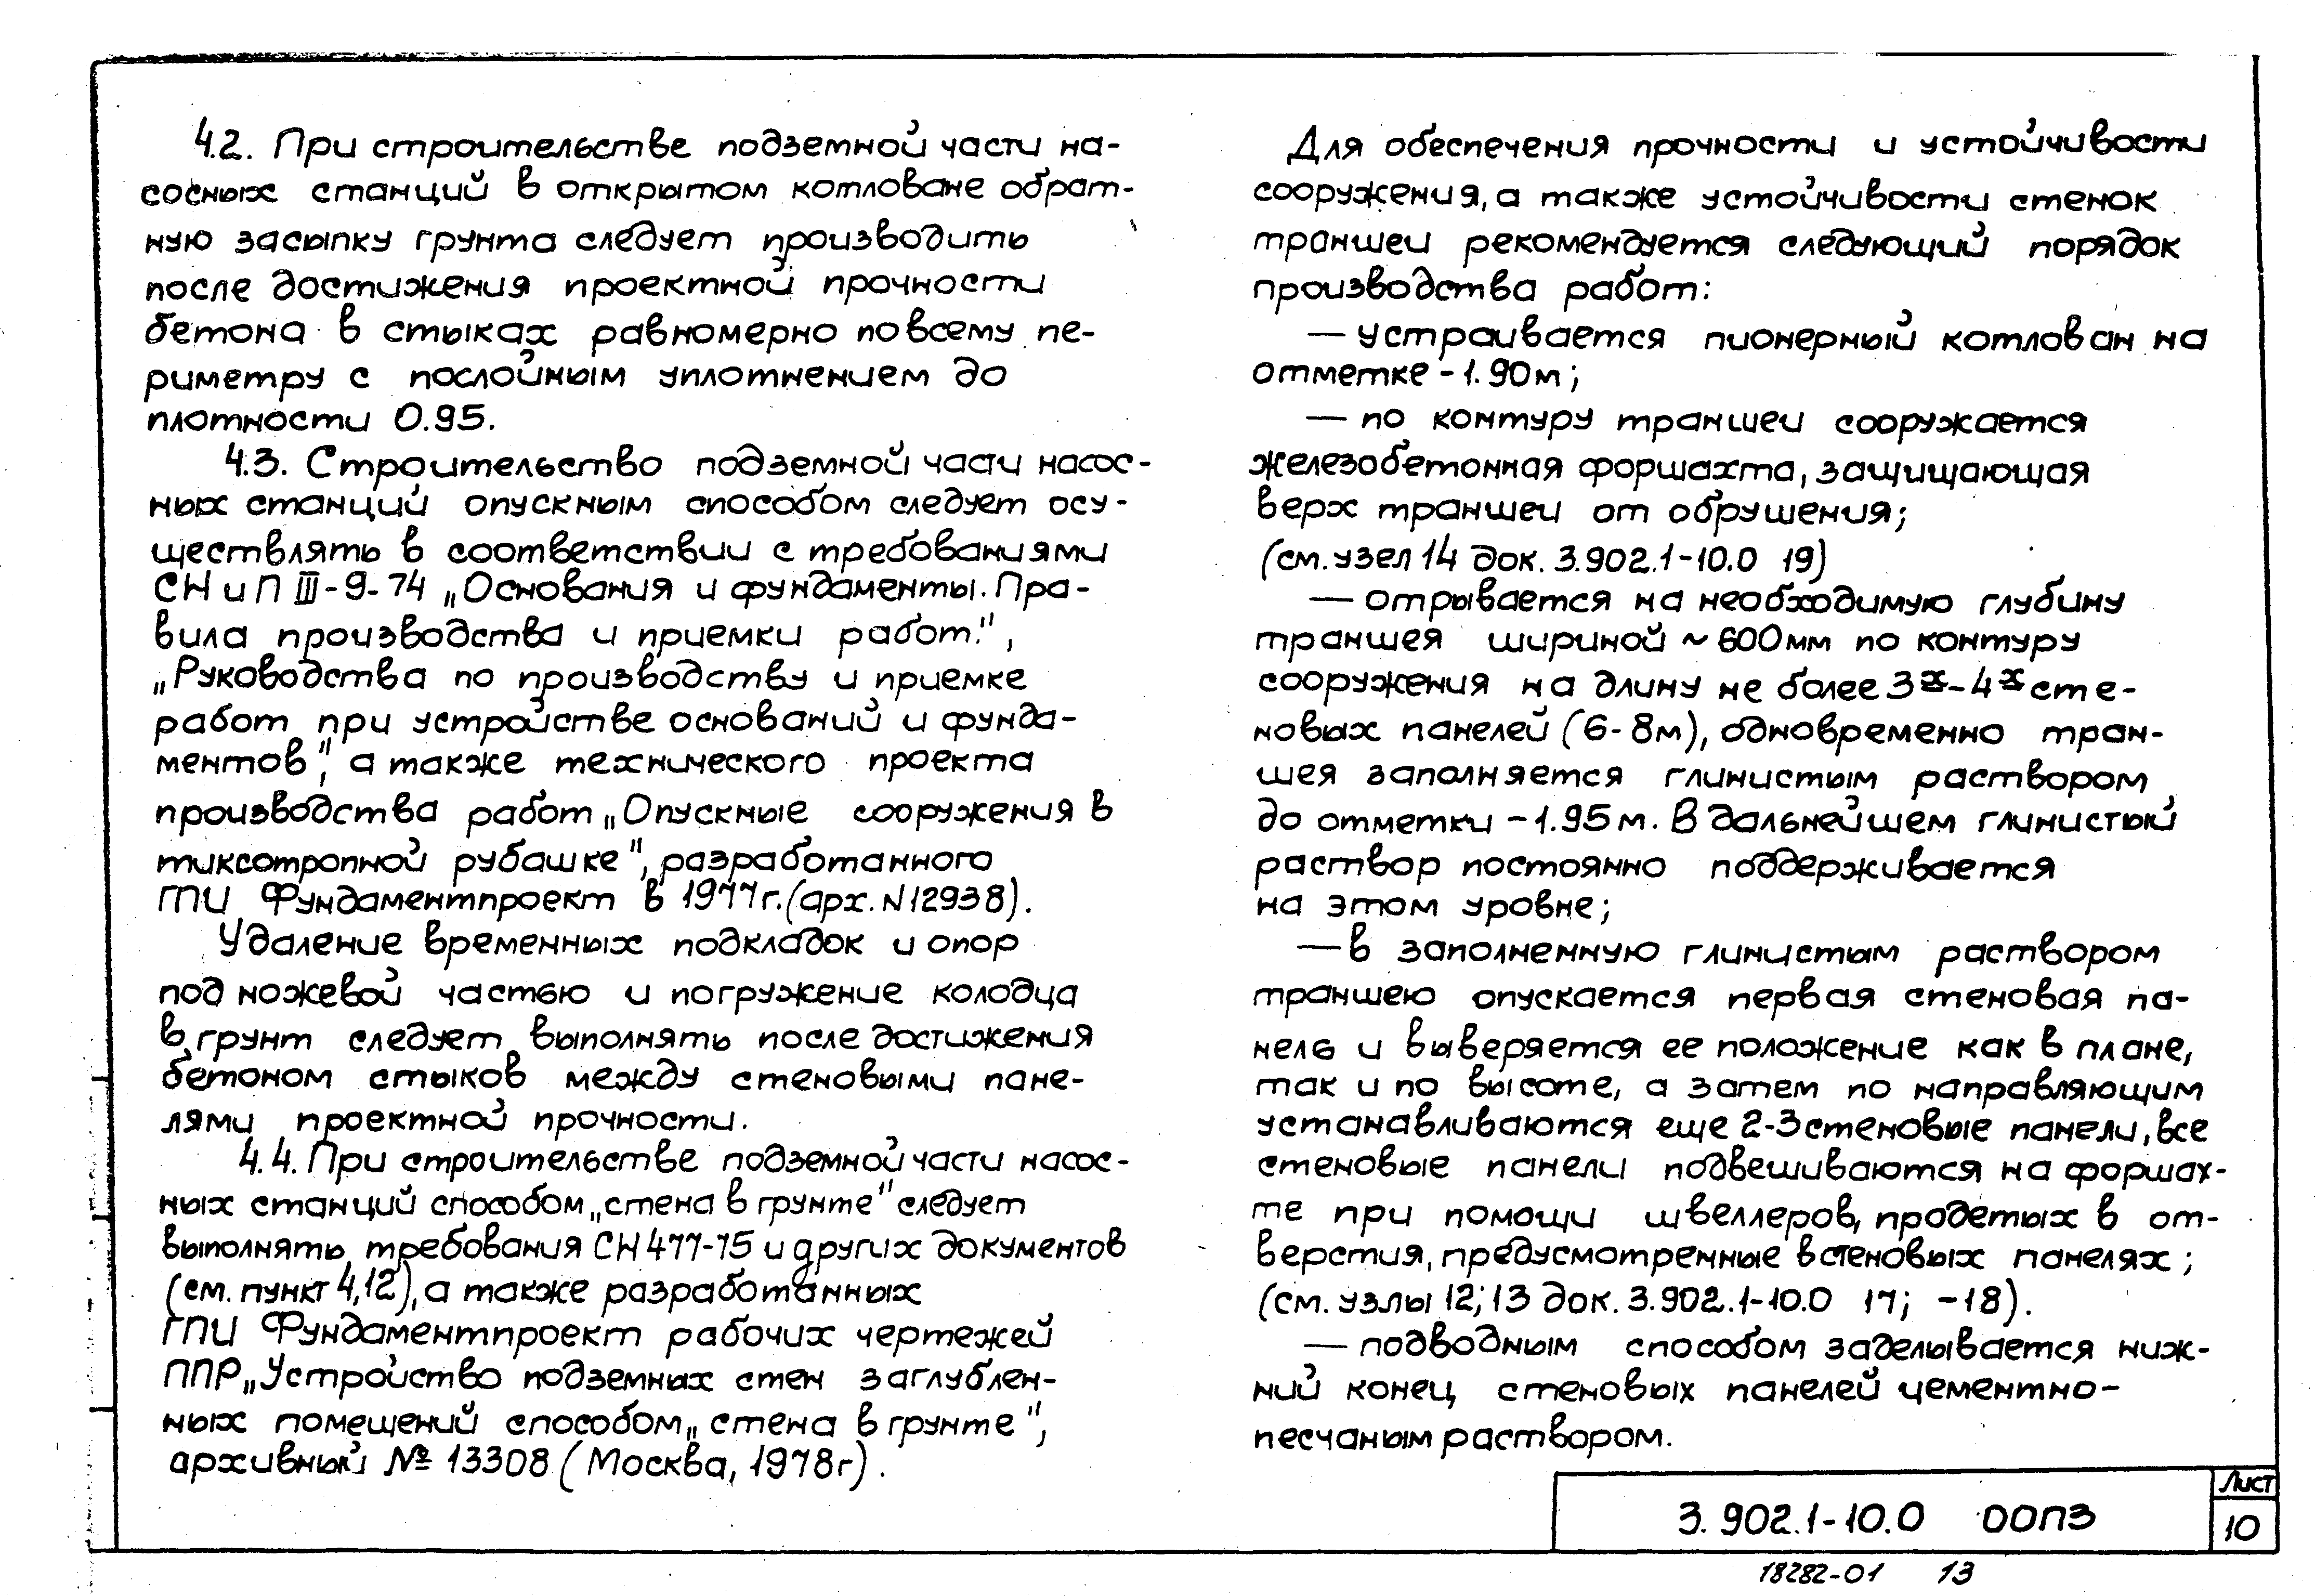 4.2. При строительстве подземной части на-
сосных станций в открытом котловане обрат-
ную засыпку грунта следует производить
после достижения проектной прочности
бетона в стыках равномерно по всему пе-
риметру с послойным уплотнением до
плотности 0.95.
4.3. Строительство подземной части насос-
ных станций опускным способом следует осу-
ществлять в соответствии с требованиями
СНиП III-9-74 „Основания и фундаменты. Пра-
вила производства и приемки работ.",
„Руководства по производству и приемке
работ при устройстве оснований и фунда-
ментов", а также технического проекта
производства работ „Опускные сооружения в
тиксотропной рубашке", разработанного
ГПИ Фундаментпроект в 1977г. (арх. N12938).
Удаление временных подкладок и опор
под ножевой частью и погружение колодца
в грунт следует выполнять после достижения
бетоном стыков между стеновыми пане-
лями проектной прочности.
4.4. При строительстве подземной части насос-
ных станций способом „стена в грунте" следует
выполнять требования СН 477-75 и других документов
(см. пункт 4,12), а также разработанных
ГПИ Фундаментпроект рабочих чертежей
ППР „Устройство подземных стен заглублен-
ных помещений способом „стена в грунте",
архивный № 13308 (Москва, 1978г).
Для обеспечения прочности и устойчивости
сооружения, а также устойчивости стенок
траншеи рекомендуется следующий порядок
производства работ:
— устраивается пионерный котлован на
отметке -1.90м;
— по контуру траншеи сооружается
железобетонная форшахта, защищающая
верх траншеи от обрушения;
(см. узел 14 док. 3.902.1-10.0 19)
— отрывается на необходимую глубину
траншея шириной ~600мм по контуру
сооружения на длину не более 3х-4х сте-
новых панелей (6-8м), одновременно тран-
шея заполняется глинистым раствором
до отметки -1.95м. В дальнейшем глинистый
раствор постоянно поддерживается
на этом уровне;
— в заполненную глинистым раствором
траншею опускается первая стеновая па-
нель и выверяется ее положение как в плане,
так и по высоте, а затем по направляющим
устанавливаются еще 2-3 стеновые панели, все
стеновые панели подвешиваются на форшах-
те при помощи швеллеров, продетых в от-
верстия, предусмотренные в стеновых панелях;
(см. узлы 12; 13 док. 3.902.1-10.0 17; -18).
— подводным способом заделывается ниж-
ний конец стеновых панелей цементно-
песчаным раствором.
3.902.1-10.0 00ПЗ
Лист
10
18282-01 13